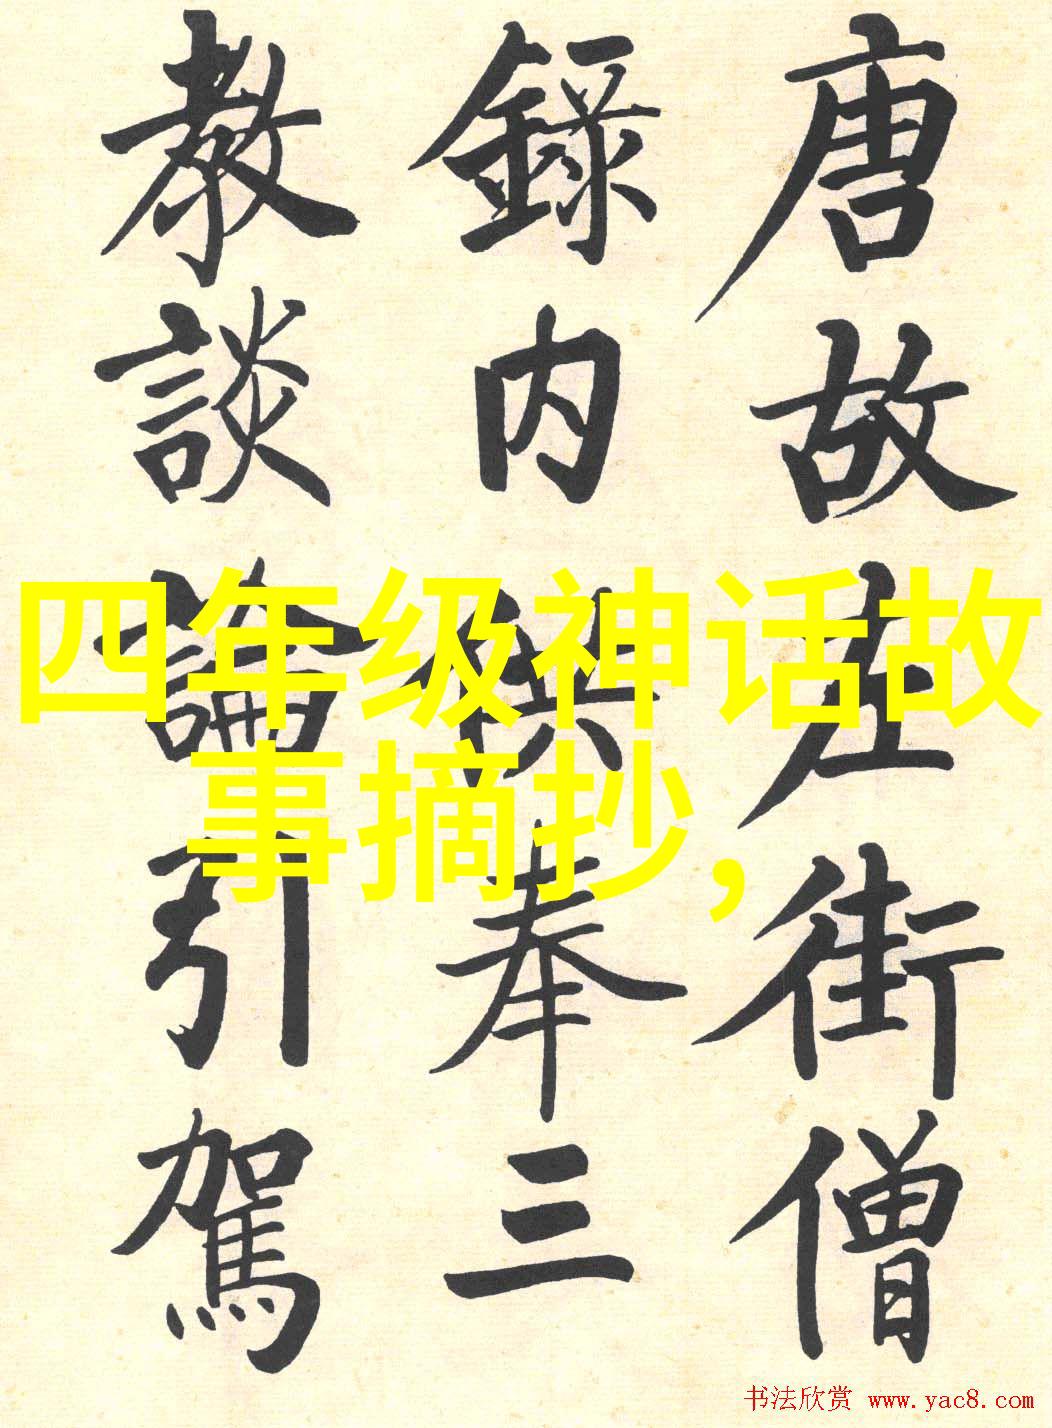 唐故左街僧
錄内供奉三
教談論引駕
四年级神话故
事摘抄,
书法欣赏 www.yac8.com